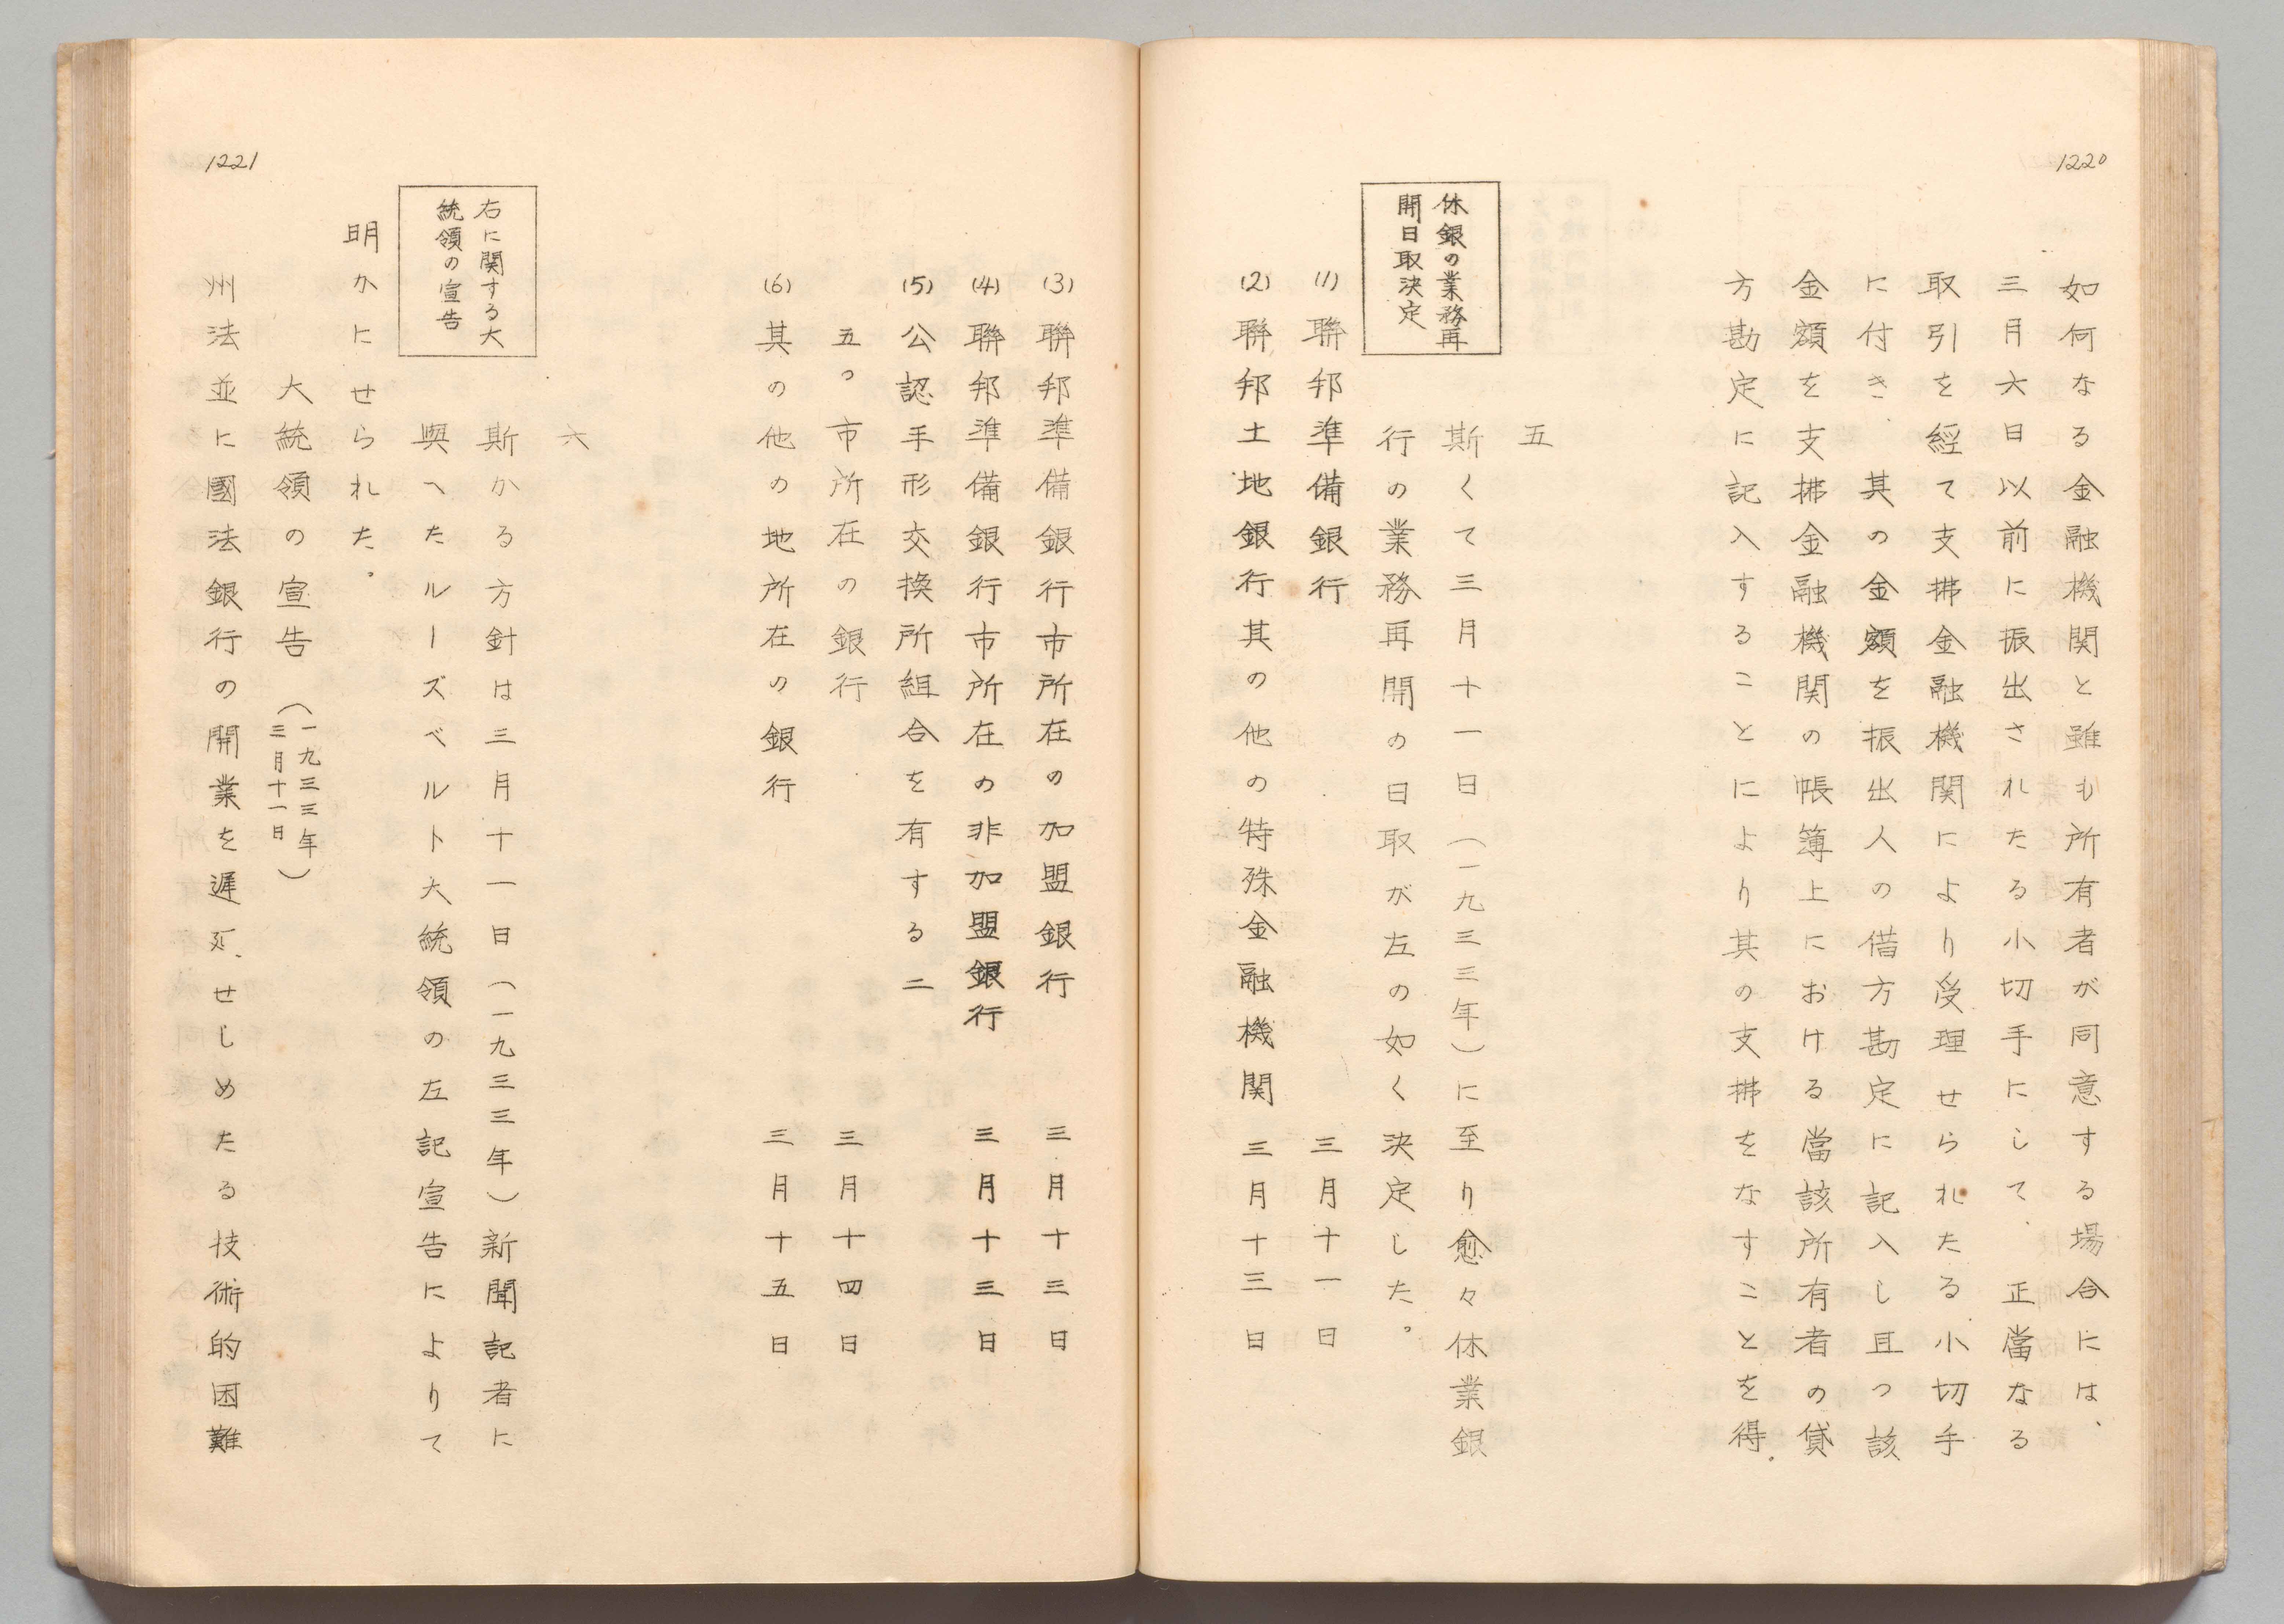 1220
如何なる金融機関と雖も所有者が同意する場合には、
三月六日以前に振出されたる小切手にして、正當なる
取引を經て支拂金融機関により受理せられたる小切手
に付き、其の金額を振出人の借方勘定に記入し且つ該
金額を支拂金融機関の帳簿上における當該所有者の貸
方勘定に記入することにより其の支拂をなすことを得
五
休銀の業務再
開日取決定
斯くて三月十一日(一九三三年)に至り愈々休業銀
行の業務再開の日取が左の如く決定した。
(1)聯邦準備銀行 三月十一日
(2)聯邦土地銀行其の他の特殊金融機関 三月十三日
(3)聯邦準備銀行市所在の加盟銀行 三月十三日
(4)聯邦準備銀行市所在の非加盟銀行 三月十三日
(5)公認手形交換所組合を有する二
五〇市所在の銀行 三月十四日
(6)其の他の地所在の銀行 三月十五日
六
右に関する大
統領の宣告
斯かる方針は三月十一日(一九三三年)新聞記者に
與へたルーズベルト大統領の左記宣告によりて
明かにせられた。
大統領の宣告(一九三三年
三月十一日)
州法並に國法銀行の開業を遅延せしめたる技術的困難
1221